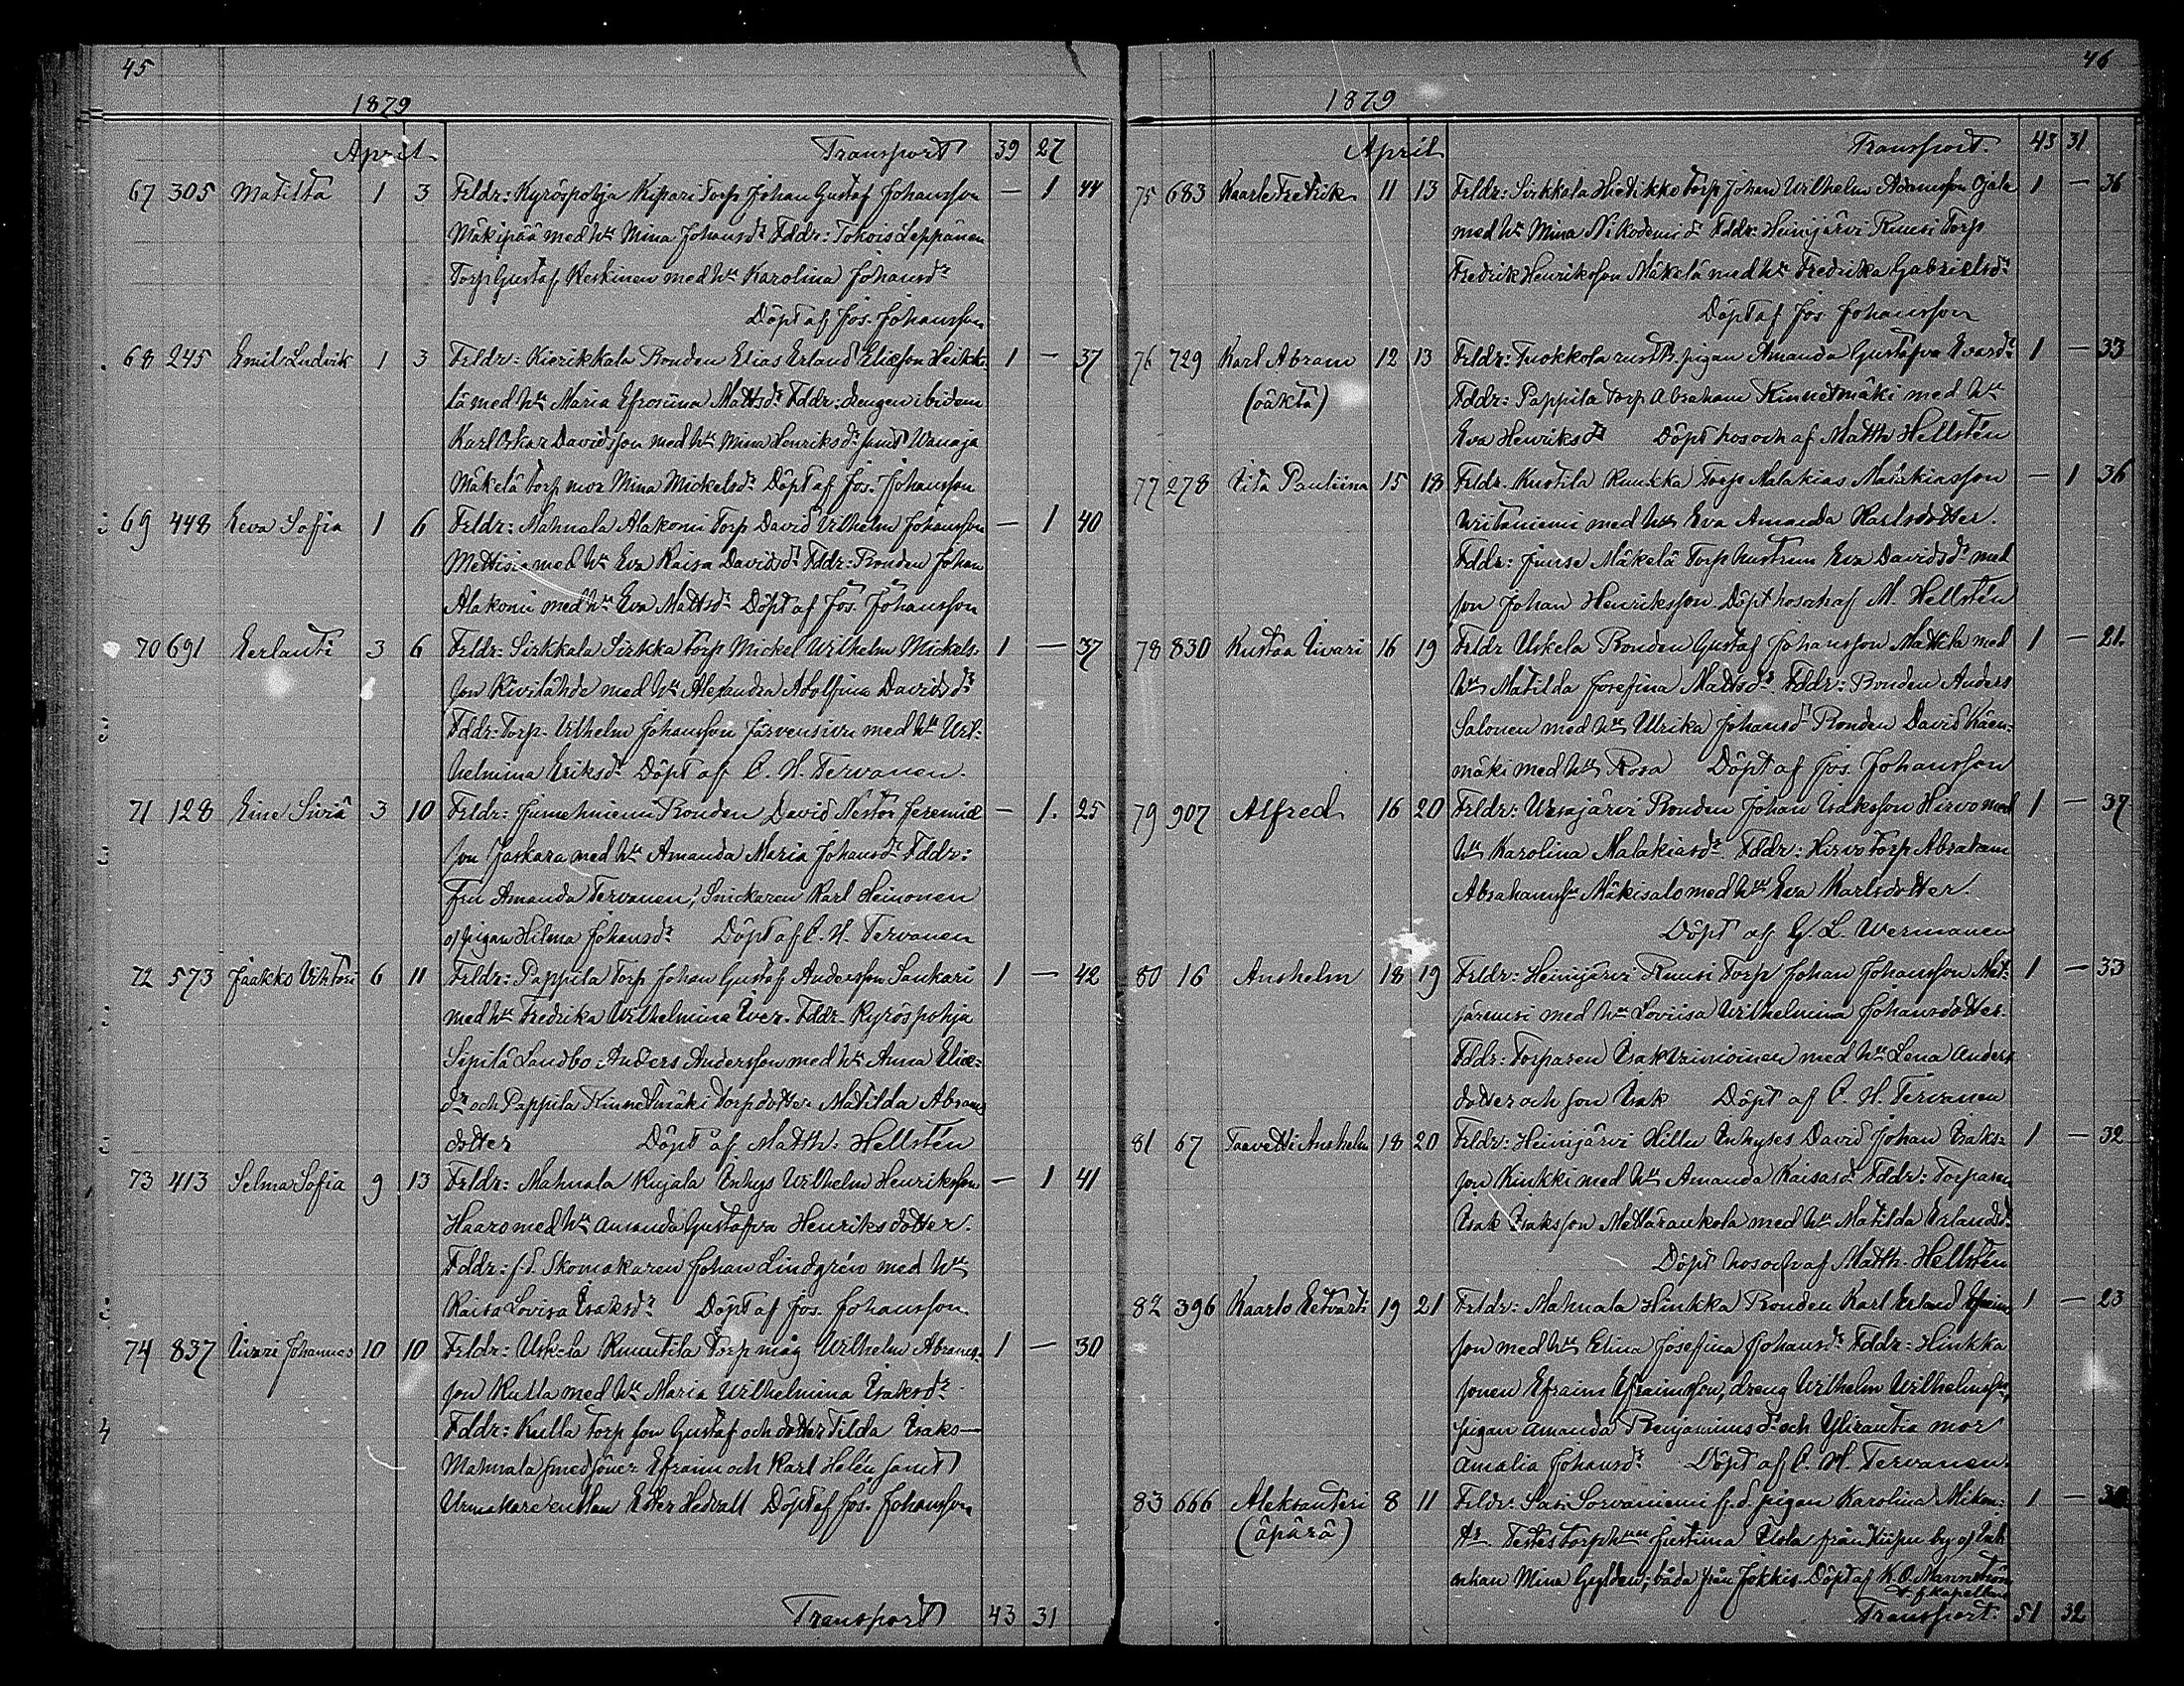 45
1879
April Transport 39 27
67 305 Matilta 1 3 Frldr: Kyröspohja Kipari Torp Johan Gustaf Johansson — 1 44
Mäkipää med hn Mina Johansdr Fddr: Tohois Leppänen
Torp Gustaf Keskinen med hn Karolina Johansdr
Döpt af Jos. Johansson
68 245 Emil Ludvik 1 3 Frldr: Kierikkala Bonden Elias Erland Eliasson Heikki- 1 — 37
lä med hn Maria Efrosiina Mattsdr Fddr: Drengen ibidem
Karl Oskar Davidsson med hn Mina Henriksdr samt Wanaja
Mäkelä Torp mor Mina Mickelsdr Döpt af Jos. Johansson
69 448 Eeva Sofia 1 6 Frldr: Mahnala Alakomi Torp David Vilhelm Johansson — 1 40
Mettisia med hn Eva Kaisa Davidsdr Fddr: Bonden Johan
Alakomi med hn Eva Mattsdr Döpt af Jos. Johansson
70 691 Eerlanti 3 6 Frldr: Sirkkala Sirkka Torp Mickel Wilhelm Mickels- 1 — 37
son Kivilähde med hn Alexandra Adolfina Davidsdr
Fddr: Torp. Vilhelm Johansson Järvensivu med hn Wil-
helmina Eriksdr Döpt af C. H. Tervanen.
71 128 Eine Siviä 3 10 Frldr: Jumehniemi Bonden David Nestor Jeremiæ — 1. 25
son Jaskara med hn Amanda Maria Johansdr Fddr:
Fru Amanda Tervanen, Snickaren Karl Heinonen
o pigan Hilma Johansdr Döpt af C. H. Tervanen
72 573 Jaakko Vihtori 6 11 Frldr: Pappila Torp Johan Gustaf Andersson Sankari 1 — 42
med hn Fredrika Wilhelmina Iver. Fddr. Kyröspohja
Sipilä Landbo Anders Andersson med hn Anna Eliæ-
dr och Pappila Kinnetmäki Torpdotter Matilda Abrams
dotter Döpt af Matth. Hellstén
73 413 Selma Sofia 9 13 Frldr: Mahnala Kujala Inhys Wilhelm Henriksson — 1 41
Haaro med hn Amanda Gustafva Henriksdotter.
Fddr: f.d. Skomakaren Johan Lindgrén med hn
Kaisa Lovisa Isaksdr Döpt af Jos. Johansson
74 837 Iivari Johannes 10 10 Frldr: Uskela Knuutila Torp måg Wilhelm Abrams- 1 — 30
son Kulla med hn Maria Wilhelmina Isaksdr
Fddr: Kulla Torp son Gustaf och dotter Tilda Isaks—
Mahnala smedsöner Efraim och Karl Helin samt
Urmakare enkan Ester Hedvall Döpt af Jos. Johansson
Transport 43 31
46
1879
April Transport. 43 31
75 683 Kaarle Fredrik 11 13 Frldr: Sirkkala Hiedikko Torp Johan Wilhelm Adamsson Ojala 1 — 36
med hn Mina Nikodemidr Fddr: Heinijärvi Ruusi Torp
Fredrik Henriksson Mäkelä med hn Fredrika Gabrielsdr
Döpt af Jos Johansson
76 729 Karl Abram 12 13 Frldr: Tuokkola rusth. pigan Amanda Gustafva Evasdr 1 — 33
(oäkta) Fddr: Pappila Torp Abraham Kinnetmäki med hn
Eva Henriksdr Döpt hos och af Matth Hellstén
77 278 Iita Pauliina 15 18 Frldr. Kustila Ruukka Torp Malakias Malakiasson — 1 36
Writaniemi med hn Eva Amanda Karlsdotter.
Fddr: Juuse Mäkelä Torp hustrun Eva Davidsdr med
son Johan Henriksson Döpt hos och af M. Hellstén
78 830 Kustaa Iivari 16 19 Frldr Uskela Bonden Gustaf Johansson Mattila med 1 — 21.
hn Matilda Josefina Mattsdr. Fddr: Bonden Anders
Salonen med hn Ulrika Johansdr Bonden David Käen-
mäki med hn Rosa Döpt af Jos. Johansson
79 907 Alfred 16 20 Frldr: Wesajärvi Bonden Johan Isaksson Hirvo med 1 — 37
hn Karolina Malakiasdr. Fddr: Hirvo Torp Abraham
Abrahamsson Mäkisalo med hn Eva Karlsdotter.
Döpt af G. L. Wermanen
80 16 Anshelm 18 19 Frldr: Heinijärvi Ruusi Torp Johan Johansson Met- 1 — 33
järvensi med hn Loviisa Wilhelmina Johansdotter.
Fddr: Torparen Isak Vainioinen med hn Lena Anders
dotter och son Isak Döpt af C. H. Tervanen
81 67 Taavetti Anshelm 18 20 Frldr: Heinijärvi Hillu Inhyses David Johan Isaks- 1 — 32
son Kinkki med hn Amanda Kaisasdr Fddr: Torparen
Isak Isaksson Mettärankola med hn Matilda Erlandsdr
Döpt hos och af Matth. Hellstén
82 396 Kaarlo Eetvarti 19 21 Frldr: Mahnala Hinkka Bonden Karl Erland Efraims 1 — 23
son med hn Elina Josefina Johansdr Fddr: Hinkka
sonen Efraim Efraimsson, dreng Wilhelm Wilhelmsson,
pigan Amanda Benjaminsdr och Ylirantia mor
Amalia Johansdr Döpt af C. H. Tervanen.
83 666 Aleksanteri 8 11 Frldr: Sasi Sorvaniemi f.d. pigan Karolina Mikon- 1 —
(äpärä) dr. Testes Torphun Justiina Uola från Kiipu by o Enk
enkan Mina Gylden, båda från Jokkis. Döpt af K. O. Mannström
v. f. kapellan
Transport. 51 32